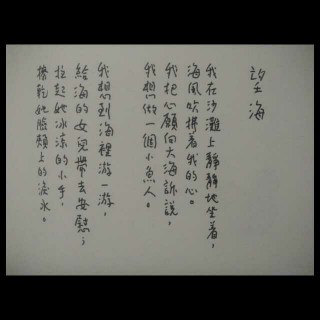 望海
我在沙灘上靜靜地坐着，
海風吹拂着我的心。
我把心願向大海訴說，
我想做一個小魚人。
我想到海裡游一游，
給海的女兒帶去安慰；
拉起她冰涼的小手，
擦乾她臉頰上的淚水。